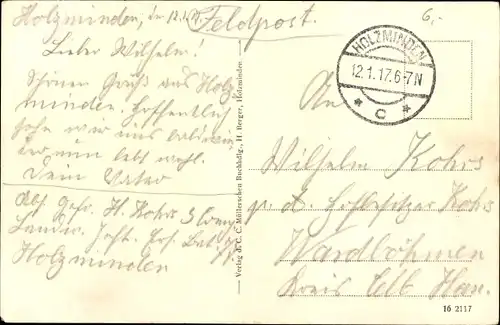 Holzminden, den 12.1.17.
Feldpost.
Lieber Wilhelm!
Schönen Gruß aus Holz
minden. Hoffentlich
sehn wir uns bald wie
der nun lebt wohl.
Dein Vater
Abs. Gefr. H. Kohrs 3 Comp
Landw. Inft. Ers. Bat.
Holzminden
Verlag d. C. C. Müllerschen Buchhdlg., H. Berger, Holzminden.
6,-
HOLZMINDEN
12.1.17.6-7N
* c *
An
Wilhelm Kohrs
p. A. Hofbesitzer Kohrs
Wardböhmen
Kreis Celle Han.
16 2117